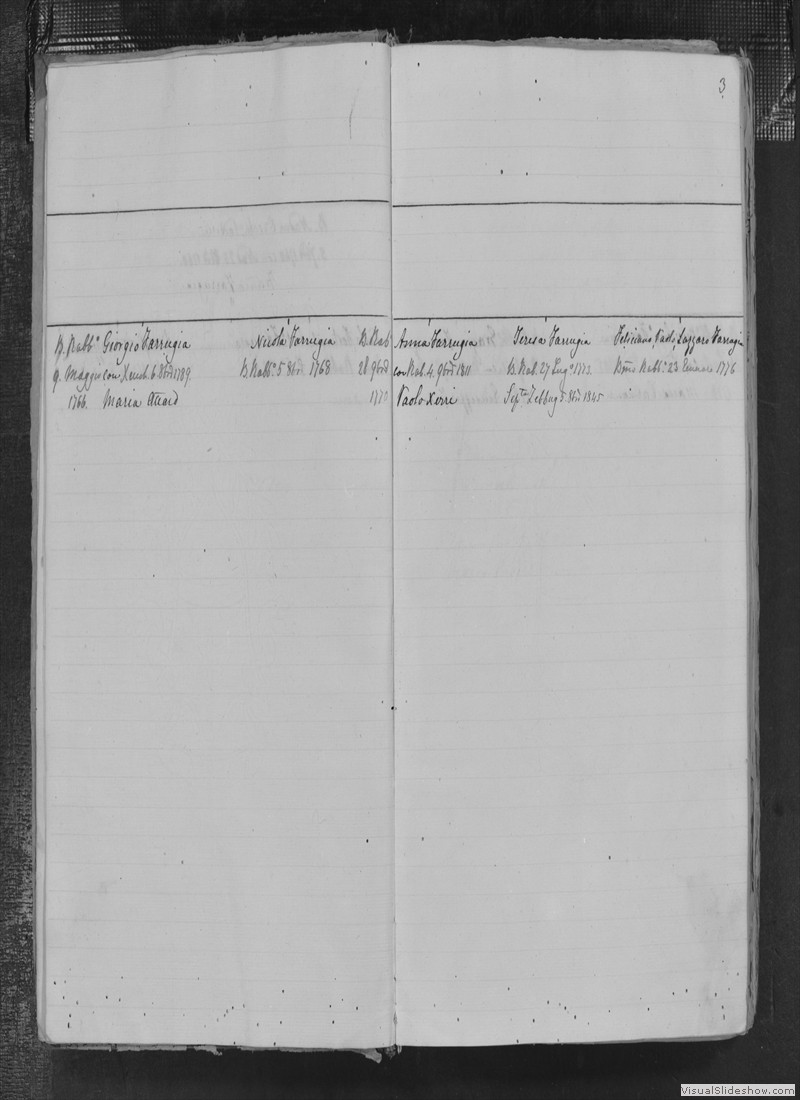 3
B. Rabb.o Giorgio Farrugia Nicola Farrugia B. Rab Anna Farrugia Teresa Farrugia Feliciano, Paolo, Lazzaro Farrugia
9. Maggio con Xeuch. 6. 1789. B. Rabb.o 5 8bre 1768 28 9bre con Rab. 4. 9bre 1811 – B. Rab. 27 Lug.o 1772. Rabb.o 23 1776
1766. Maria Attard 177 Paolo Xerri Sep.ta Zebbug 5. 8bre 1845
VisualSlideshow.com